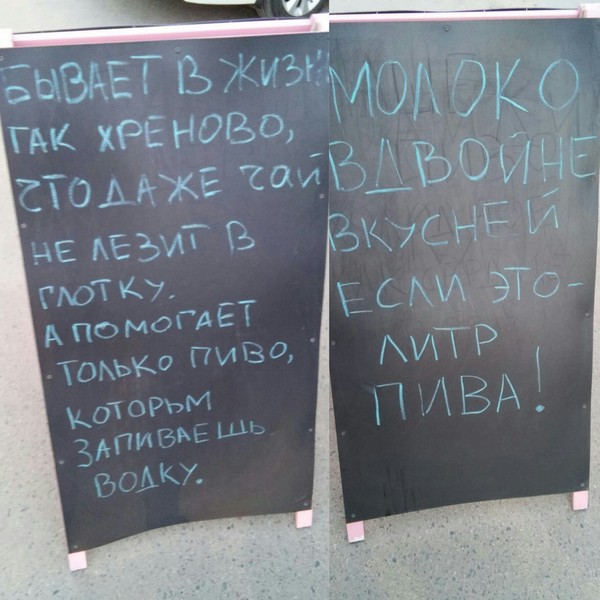 БЫВАЕТ В ЖИЗНИ
ТАК ХРЕНОВО,
ЧТО ДАЖЕ ЧАЙ
НЕ ЛЕЗИТ В
ГЛОТКУ.
А ПОМОГАЕТ
ТОЛЬКО ПИВО,
КОТОРЫМ
ЗАПИВАЕШЬ
ВОДКУ.
МОЛОКО
ВДВОЙНЕ
ВКУСНЕЙ
ЕСЛИ ЭТО-
ЛИТР
ПИВА!